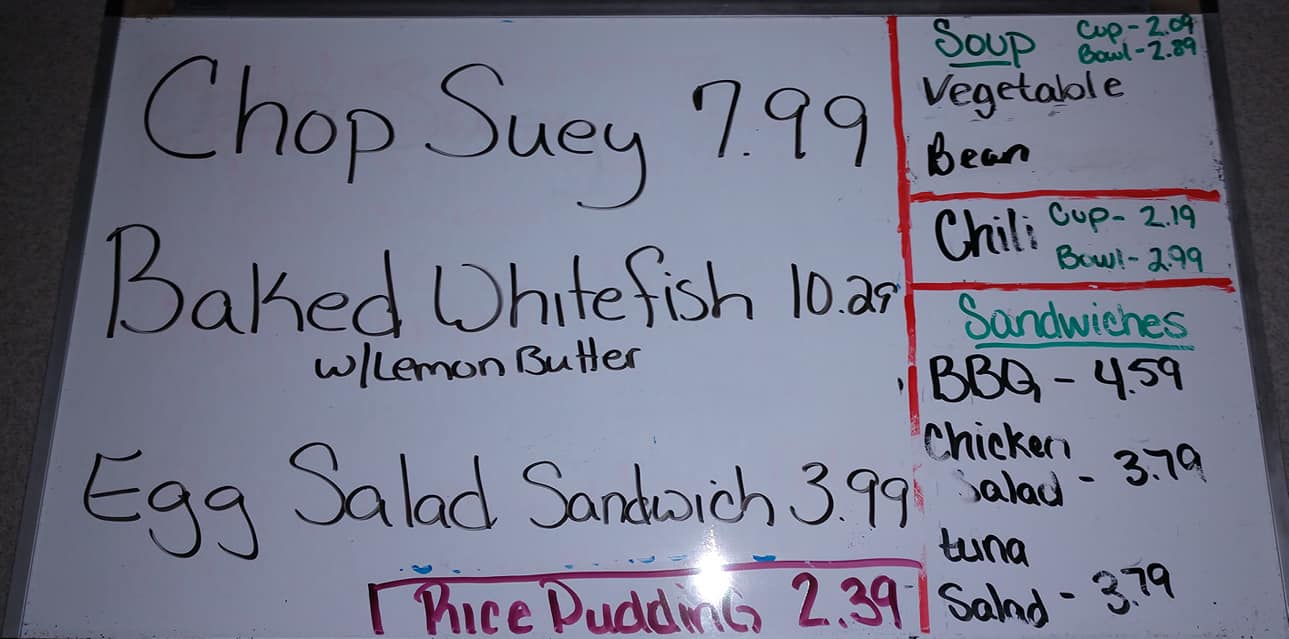 Chop Suey 7.99
Baked Whitefish 10.29
w/Lemon Butter
Egg Salad Sandwich 3.99
Rice Pudding 2.39
Soup Cup - 2.09
Bowl - 2.89
Vegetable
Bean
Chili Cup - 2.19
Bowl - 2.99
Sandwiches
BBQ - 4.59
Chicken
Salad - 3.79
tuna
Salad - 3.79